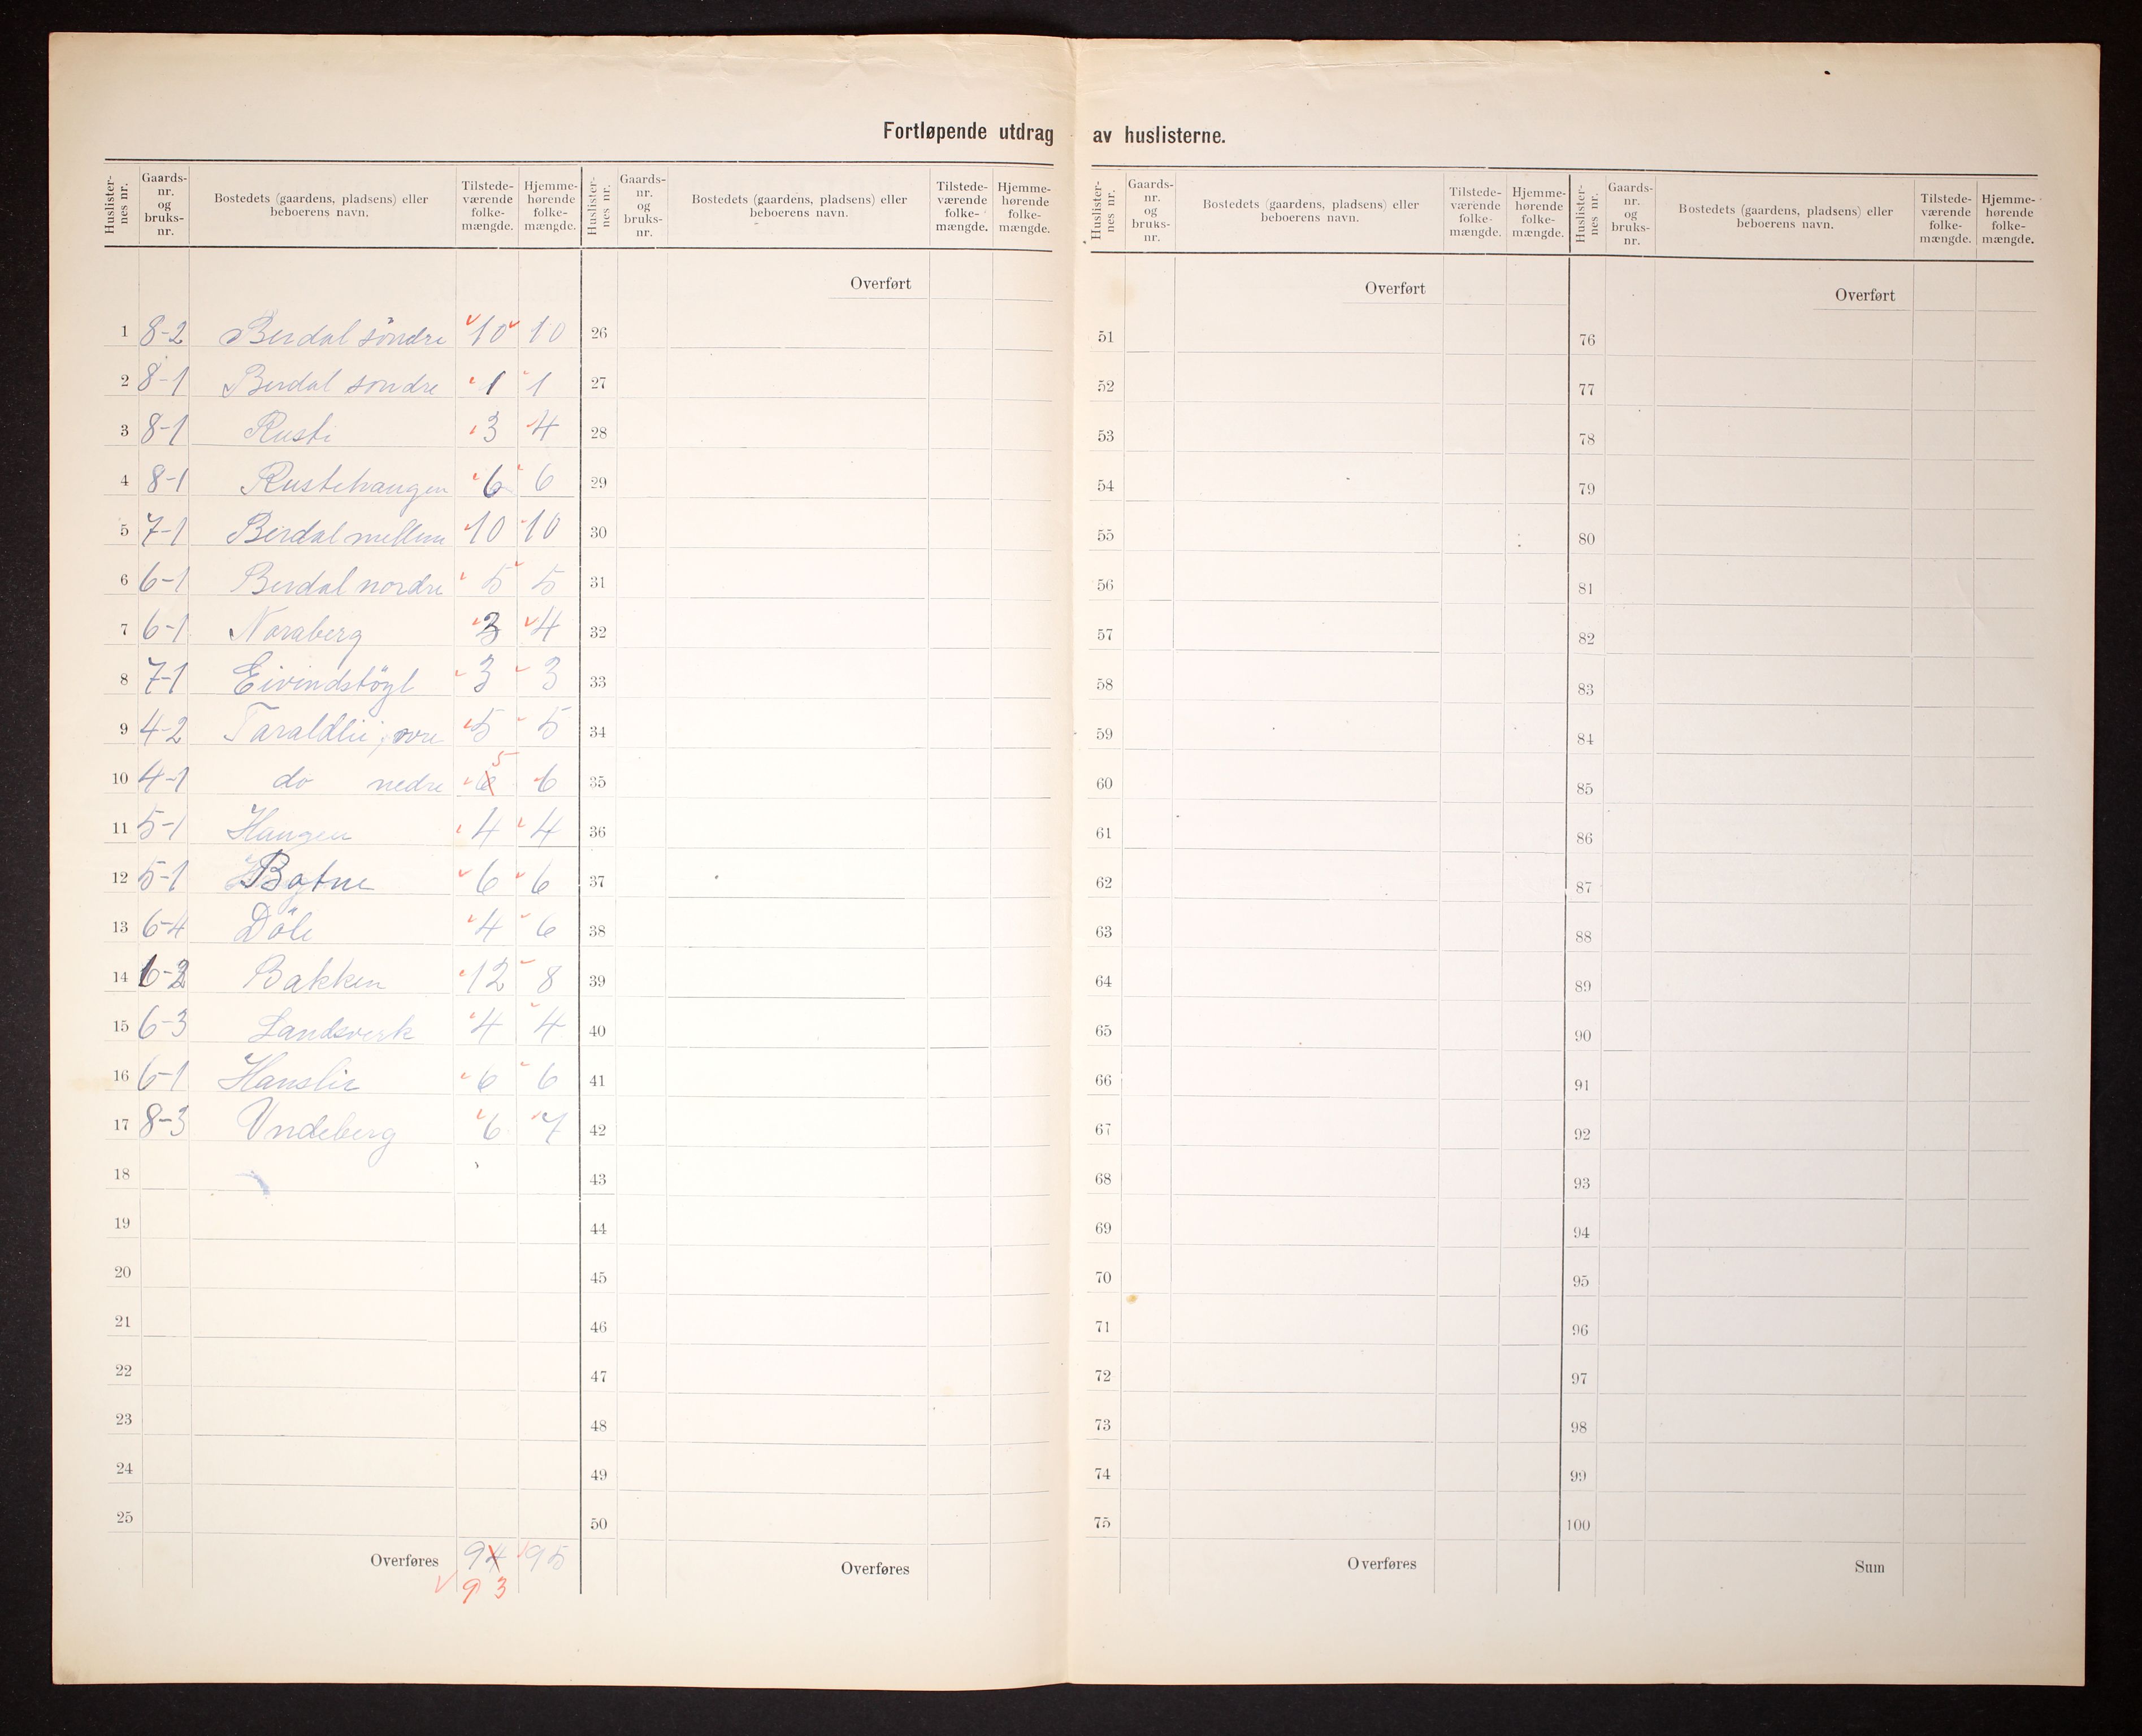 Fortløpende utdrag av huslisterne.
Huslisternes nr. Gaardsnr. og bruksnr. Bostedets (gaardens, pladsens) eller beboerens navn. Tilstedeværende folkemængde. Hjemmehørende folkemængde.
1 8-2 Berdal söndre 10 10
2 8-1 Berdal söndre 1 1
3 8-1 Rusti 3 4
4 8-1 Rustehaugen 6 6
5 7-1 Berdal mellem 10 10
6 6-1 Berdal nordre 5 5
7 6-1 Noraberg 3 4
8 7-1 Eivindstöyl 3 3
9 4-2 Taraldlii, øvre 5 5
10 4-1 do nedre 6 5 6
11 5-1 Haugen 4 4
12 5-1 Botne 6 6
13 6-4 Döli 4 6
14 6-2 Bakken 12 8
15 6-3 Landsverk 4 4
16 6-1 Hanslie 6 6
17 8-3 Undeberg 6 7
18
19
20
21
22
23
24
25
Overføres 94 95
93
Huslisternes nr. Gaardsnr. og bruksnr. Bostedets (gaardens, pladsens) eller beboerens navn. Tilstedeværende folkemængde. Hjemmehørende folkemængde.
Overført
26
27
28
29
30
31
32
33
34
35
36
37
38
39
40
41
42
43
44
45
46
47
48
49
50
Overføres
Huslisternes nr. Gaardsnr. og bruksnr. Bostedets (gaardens, pladsens) eller beboerens navn. Tilstedeværende folkemængde. Hjemmehørende folkemængde.
Overført
51
52
53
54
55
56
57
58
59
60
61
62
63
64
65
66
67
68
69
70
71
72
73
74
75
Overføres
Huslisternes nr. Gaardsnr. og bruksnr. Bostedets (gaardens, pladsens) eller beboerens navn. Tilstedeværende folkemængde. Hjemmehørende folkemængde.
Overført
76
77
78
79
80
81
82
83
84
85
86
87
88
89
90
91
92
93
94
95
96
97
98
99
100
Sum